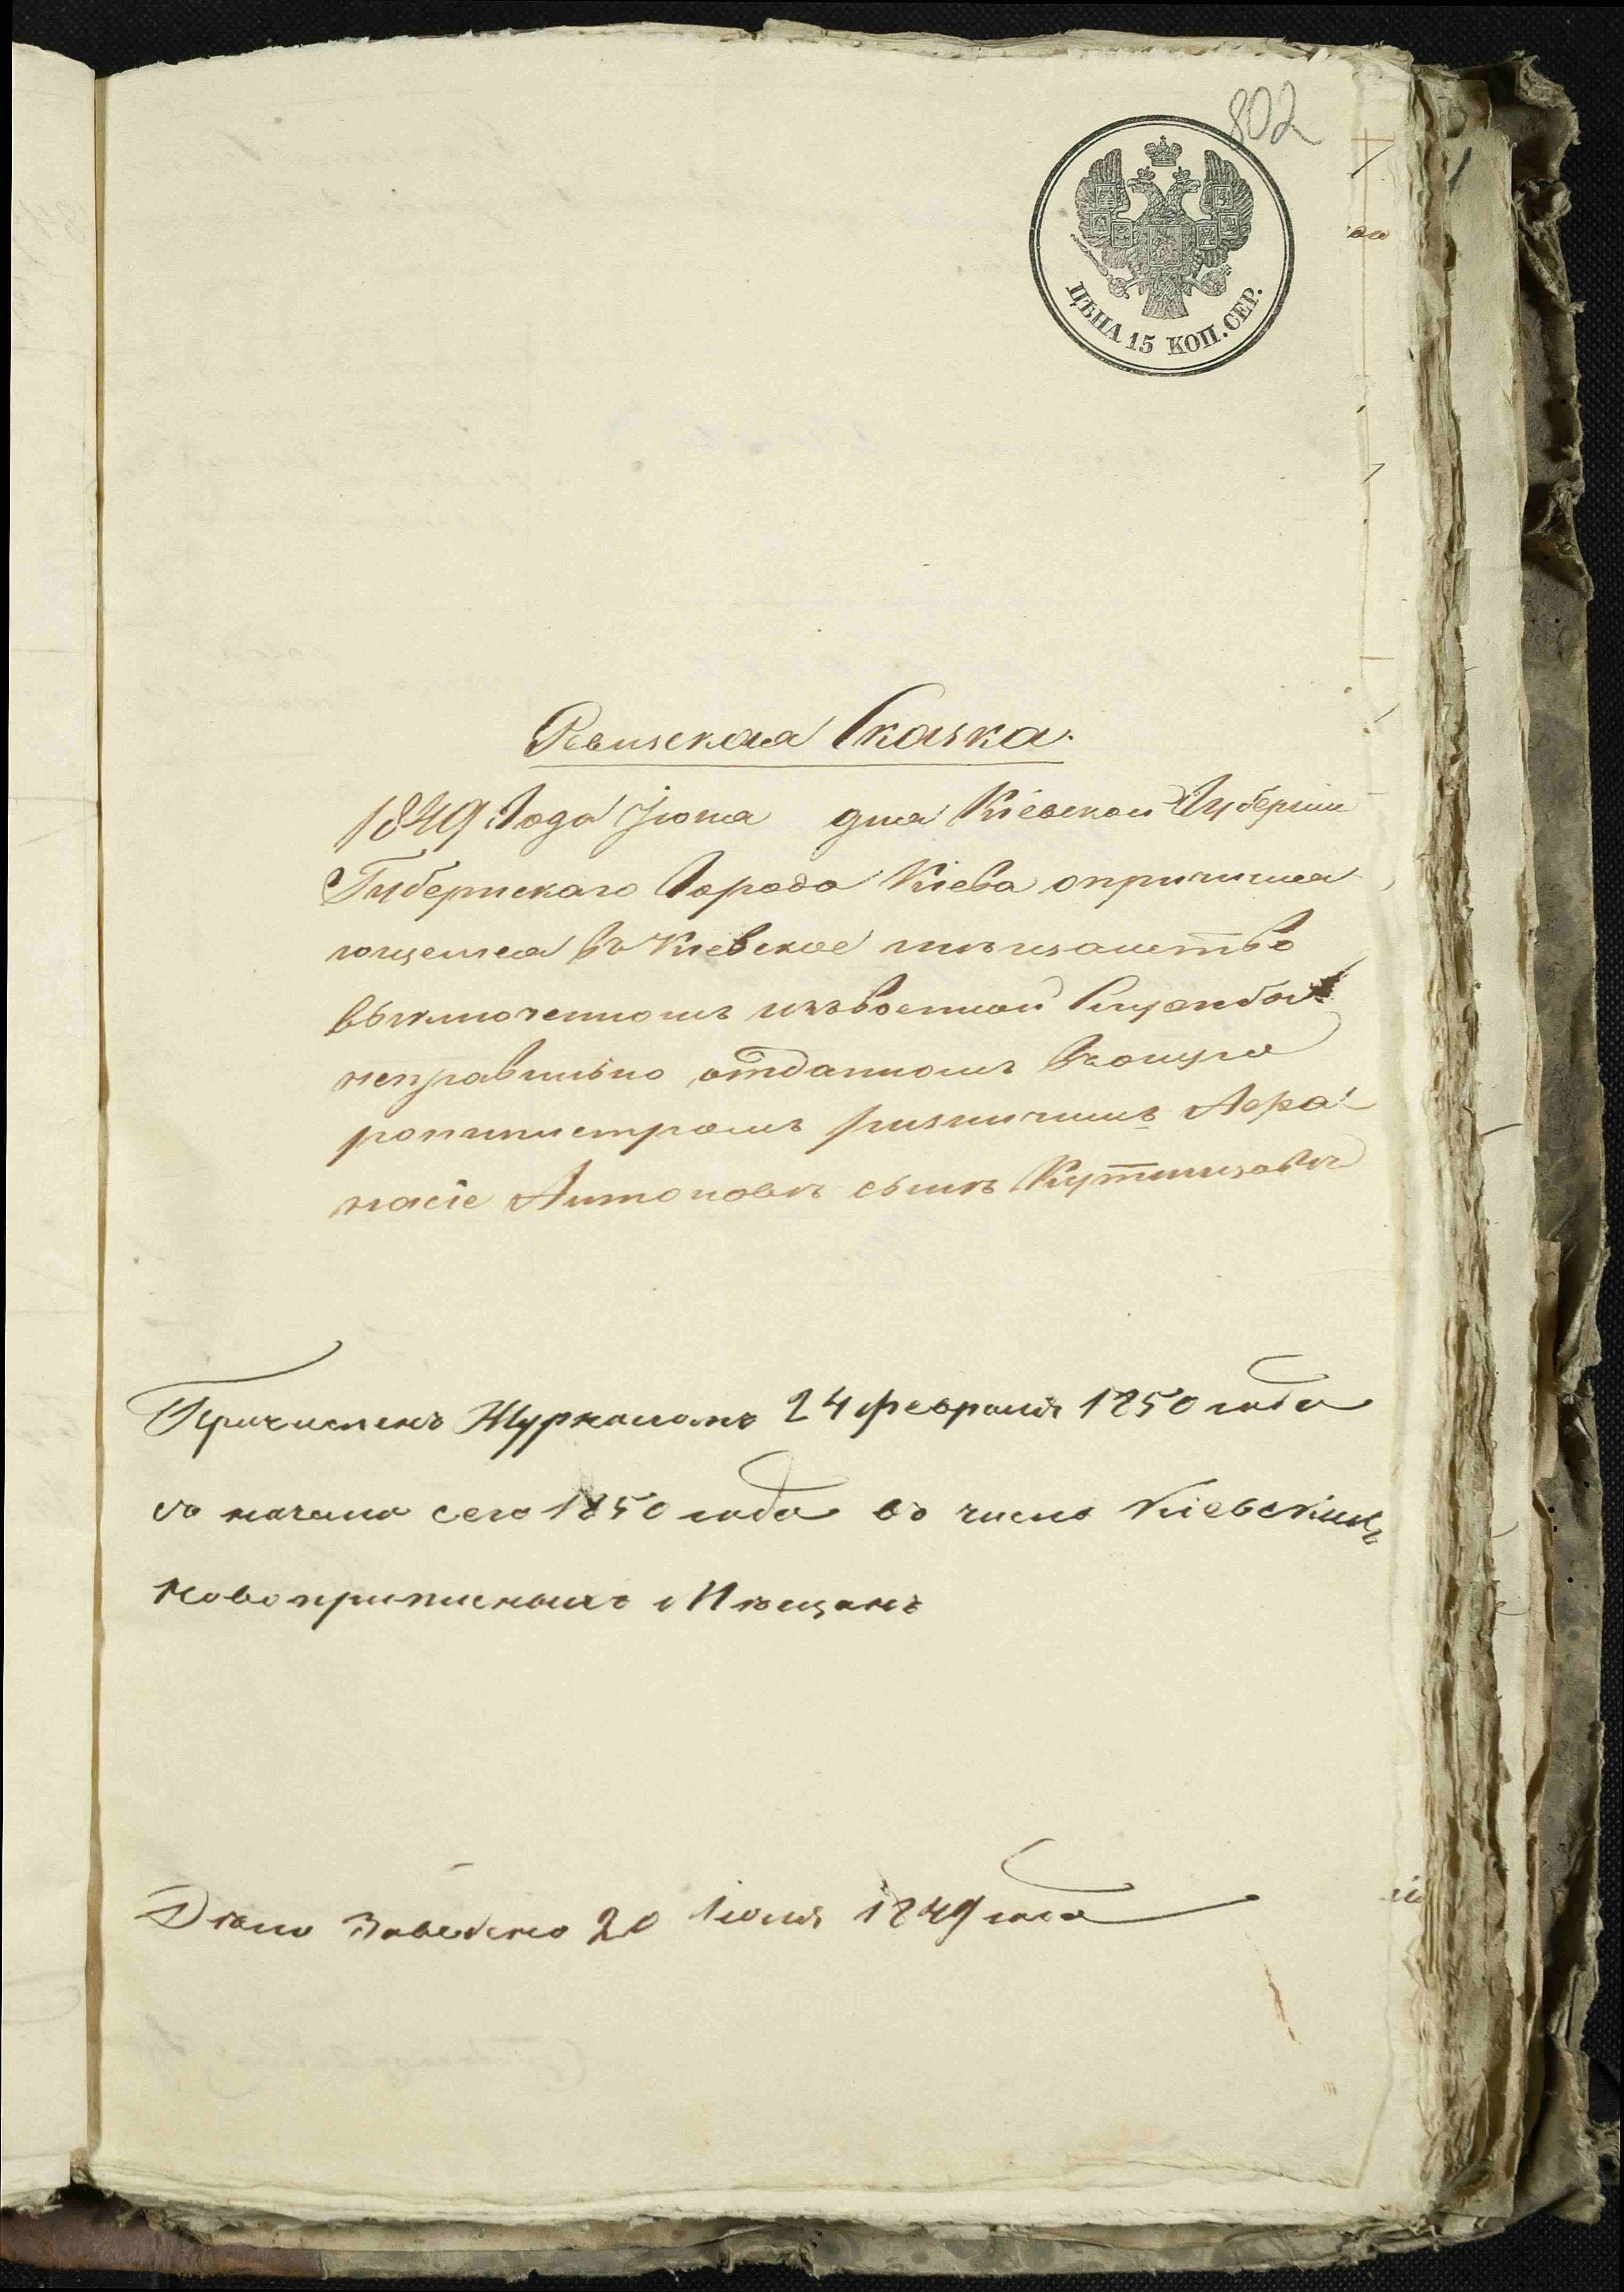 802
ЦѢНА 15 КОП. СЕР.
Ревизская Сказка.
1849 Года Іюня дня Кіевской Губерніи
Губернскаго Города Кіева опричисля
ющемся въ Кіевское мѣщанство
выключенномъ изъ военной Службы
неправильно отданномъ
Афа
насіе Антоновѣ сынѣ
Причисленъ Журналомъ 24 февраля 1850 года
съ начала сего 1850 года въ число Кіевскихъ
Новоприписныхъ Мѣщанъ
Дѣло Заведено 20 Іюня 1849 года